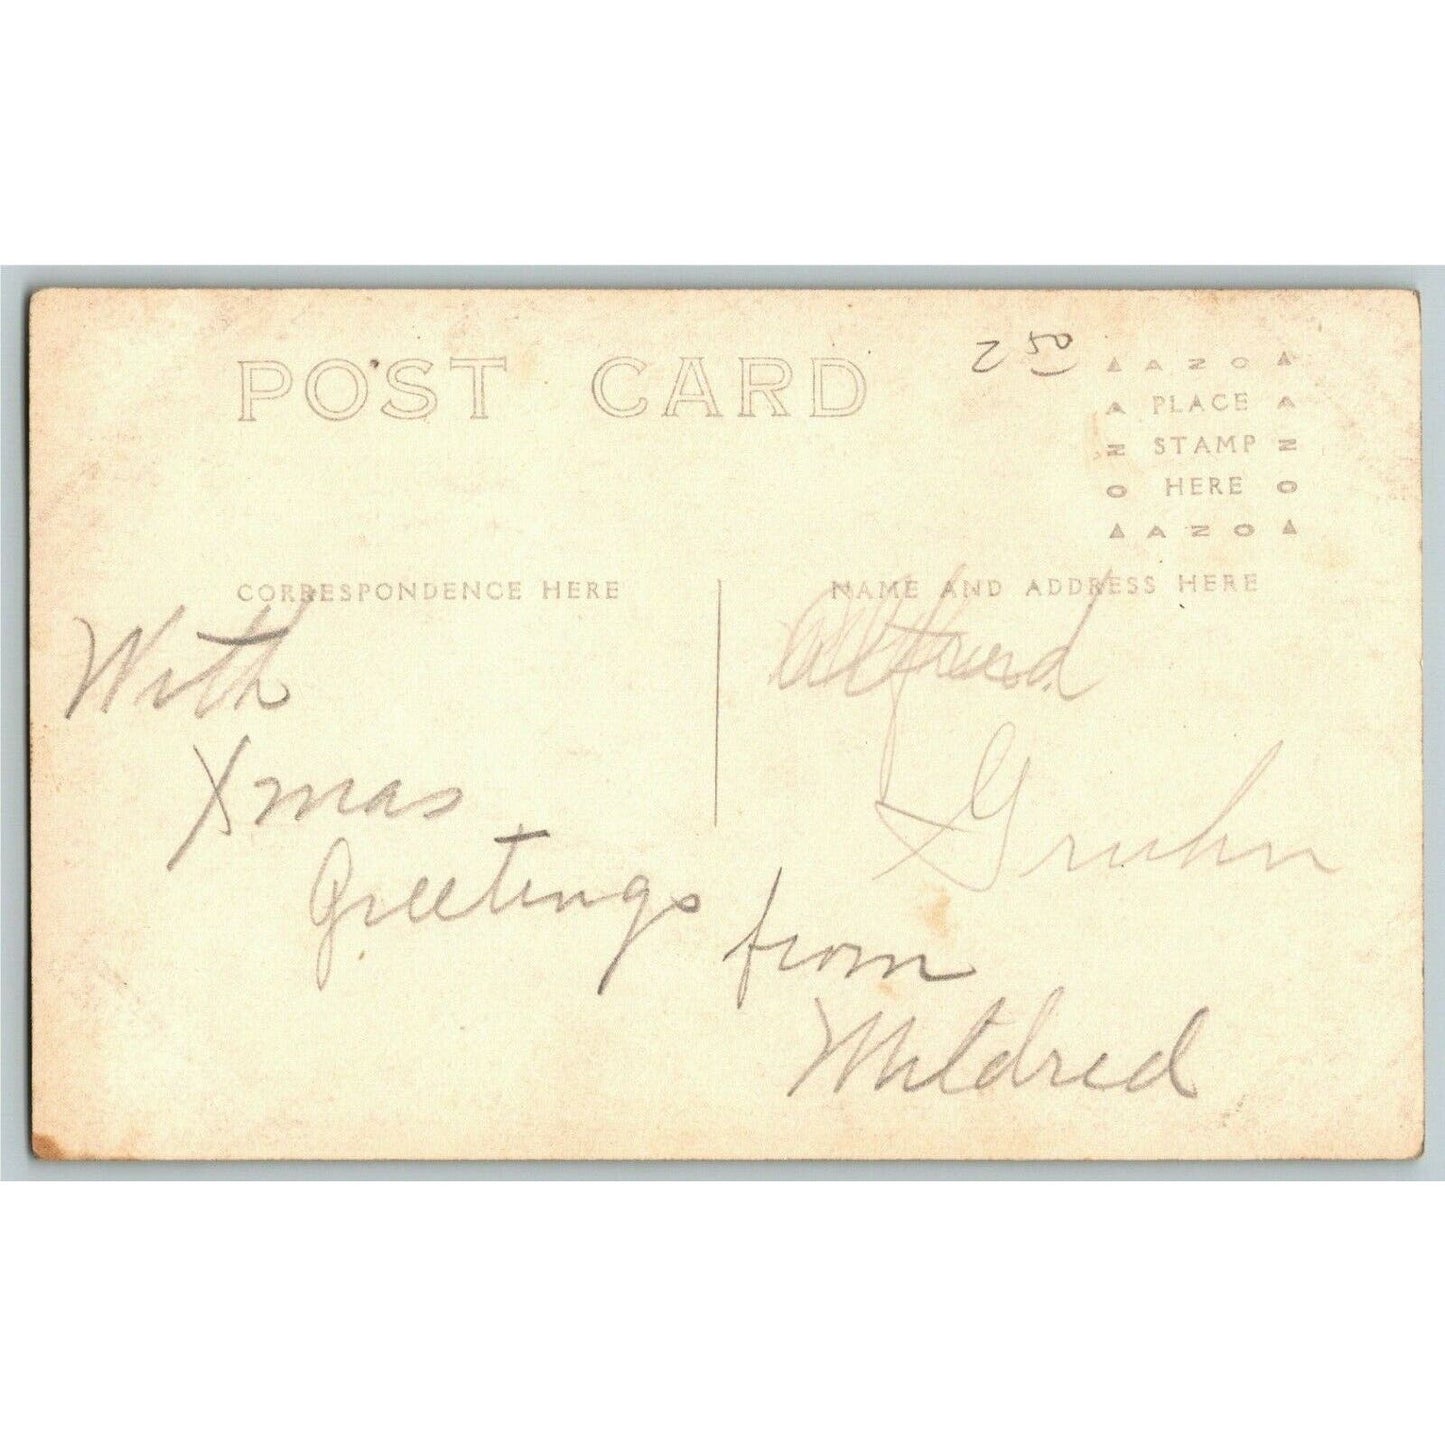 POST CARD
2 50
AZO
PLACE
STAMP
HERE
AZO
CORRESPONDENCE HERE
NAME AND ADDRESS HERE
With
Xmas
Greetings from
Mildred
Alfred
Gruhn